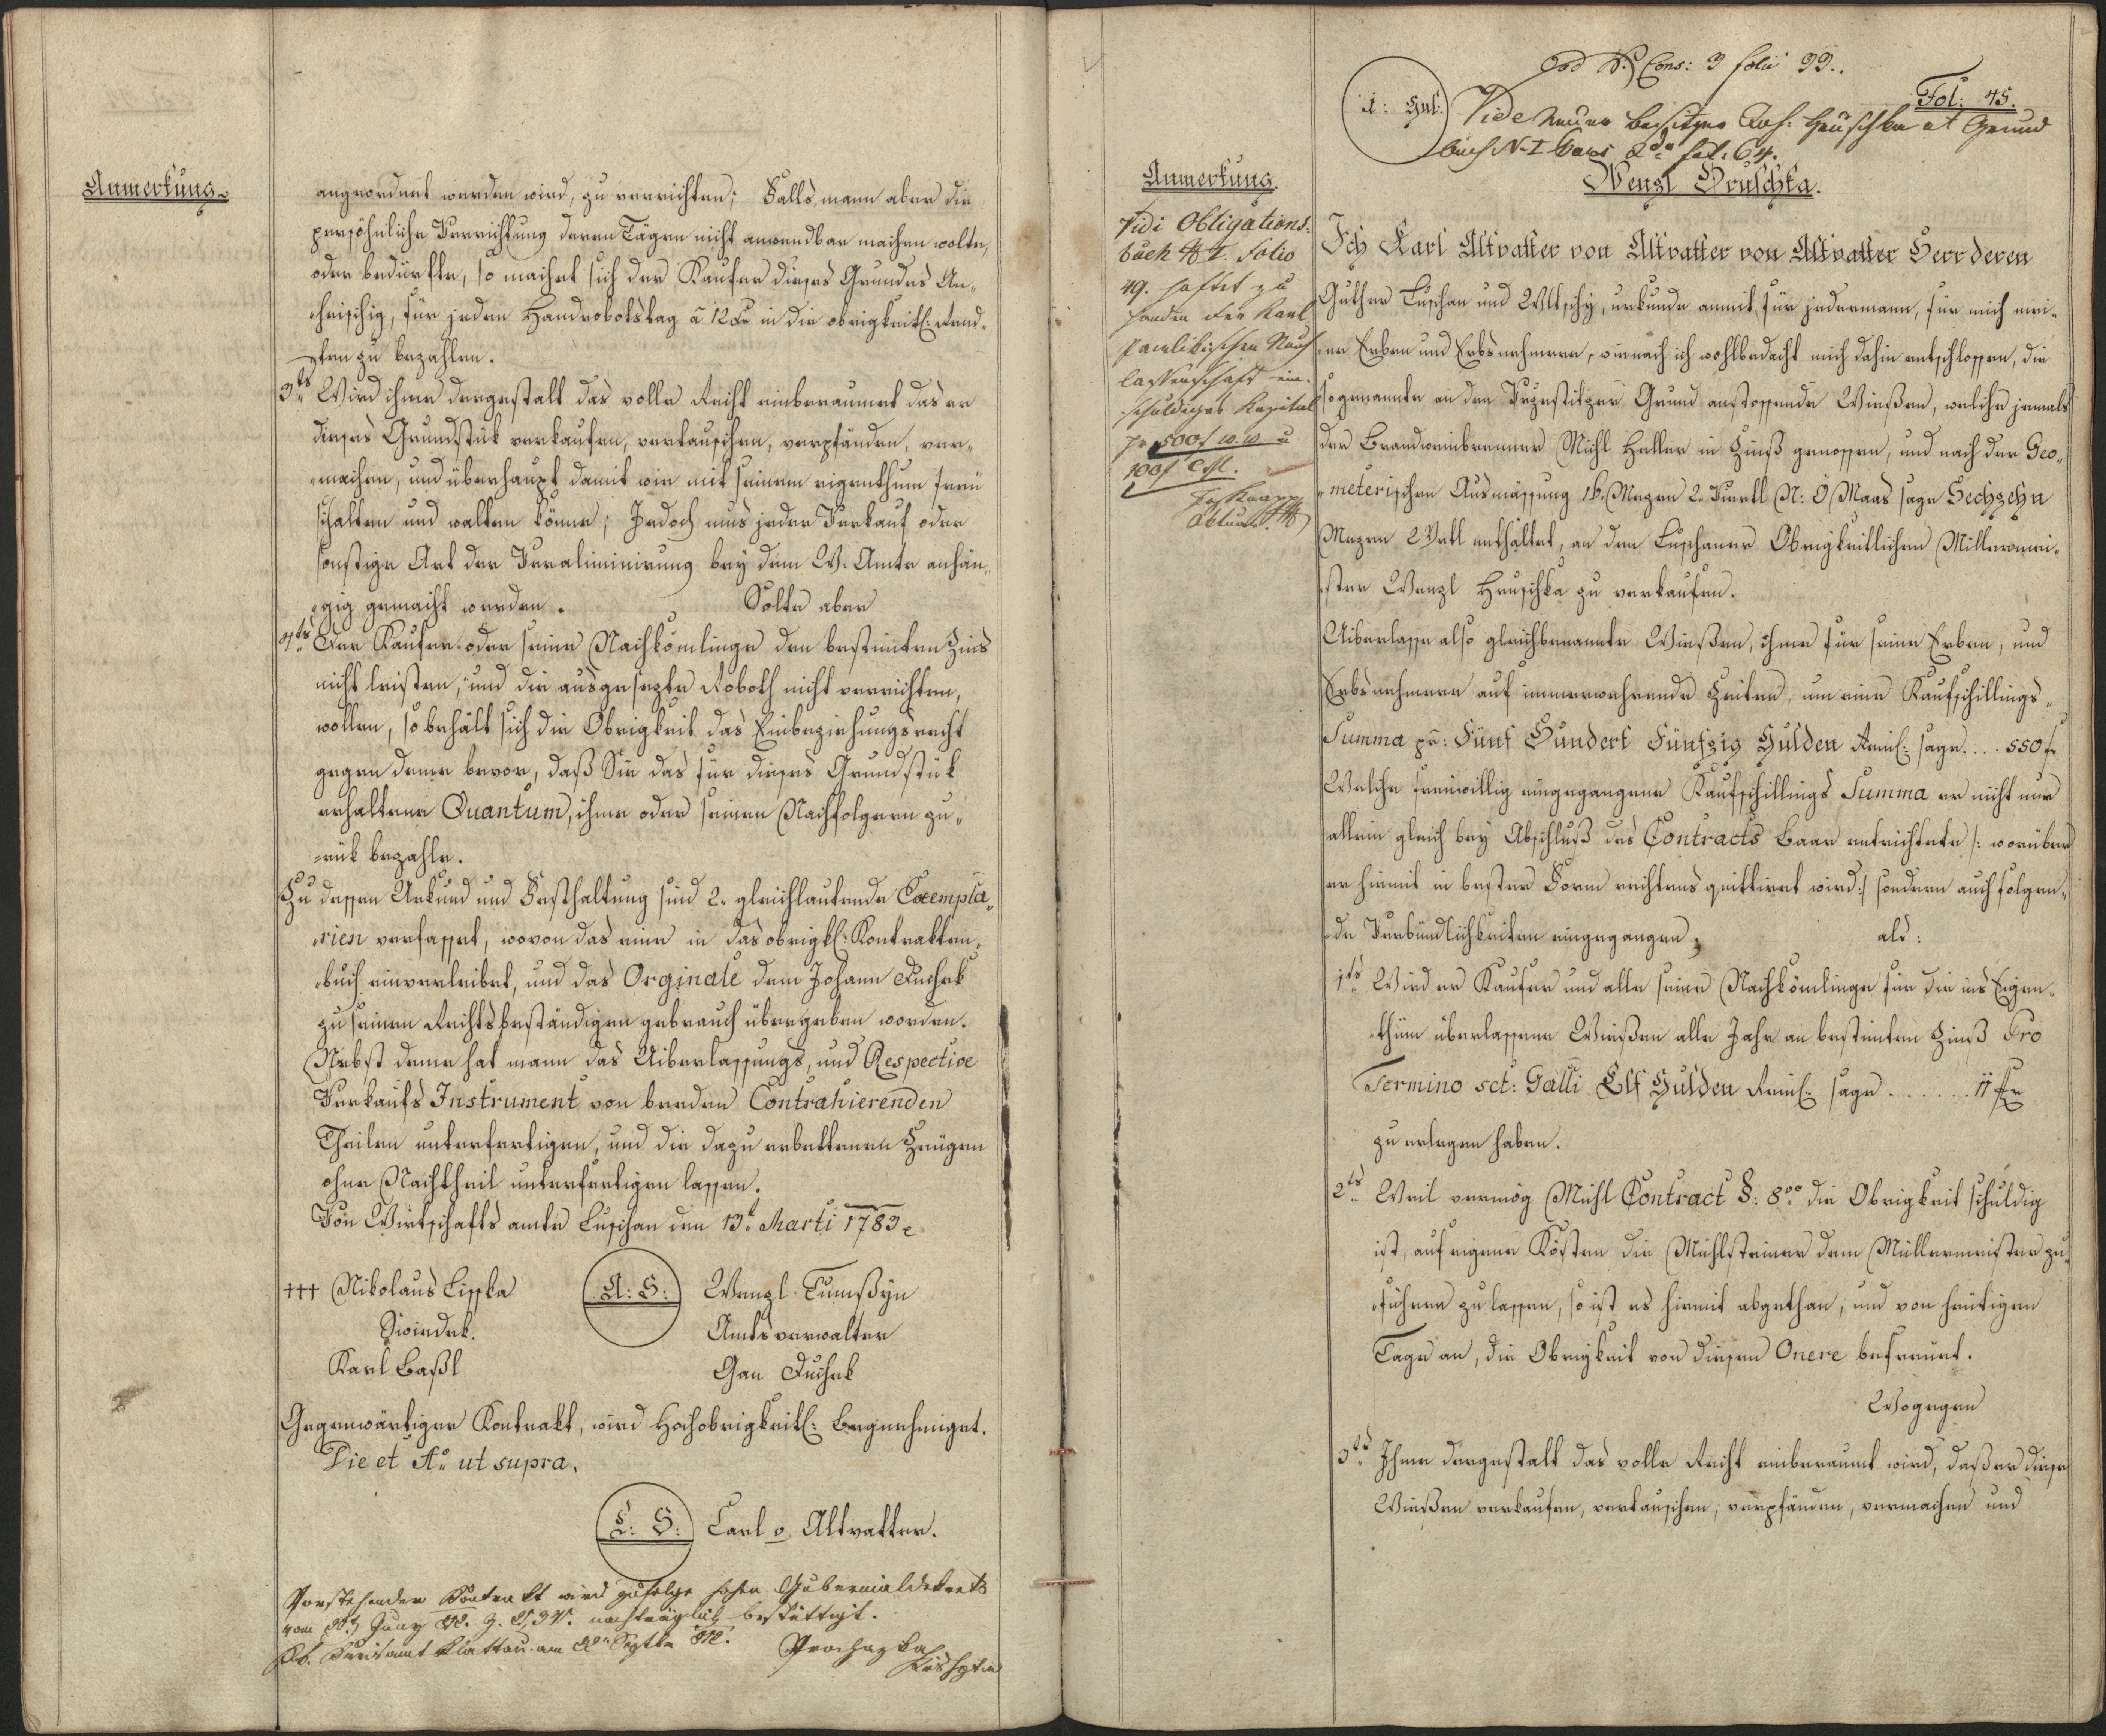 Anmerkung
angeordnet werden wird, zu verrichten; Falls mann aber die
persöhnliche Verrichtung deren Tägen nicht anwendbar machen wolte,
oder bedürfte, so machet sich der Kaufer dieses Grundes An-
heischig, für jeden Handrobotstag à 12 Xr in die obrigkeitl: Rend-
ten zu bezahlen.
3ts Wird ihme dergestalt das volle Recht einberaumet das er
dieses Grundstük verkaufen, vertauschen, verpfänden, ver-
machen, und überhaupt damit wie mit seinem eigenthum freü
schalten und walten könne; Jedoch mus jeder Verkauf oder
sonstige Art der Veraliminirung bey dem W. Amte anhän-
gig gemacht werden. Solte aber
4ts Der Kaufer oder seine Nachkömlinge den bestimten Zins
nicht leisten, und die ausgesezte Roboth nicht verrichten,
wollen, so behält sich die Obrigkeit das Einbeziehungsrecht
gegen deme bevor, daß Sie das für dieses Grundstük
erhaltene Quantum, ihme oder seinen Nachfolgern zu-
rük bezahle.
Zu dessen Urkund und Festhaltung sind 2. gleichlautende Exempla-
rien verfasset, wovon das eine in das obrigkl: Kontrakten-
buch einverleibet, und das Orginale dem Johann Duchek
zu seinen Rechtsbeständigen gebrauch übergeben worden.
Nebst deme hat mann das Uiberlassungs, und Respective
Verkaufs Instrument von beeden Contrahierenden
Theilen unterfertigen, und die dazu erbettenen Zeügen
ohne Nachtheil unterfertigen lassen.
Von Wirtschafts amte Luschan den 13t Marti 1783
+++ Nikolaus Lisska A: S: Wenzl Tumßyn
Swiedek. Amtsverwalter
Karl Baßl Gan Duchek
Gegenwärtiger Kontrakt, wird Hochobrigkeitl: Begnehmiget.
Die et Ao ut supra.
L: S: Carl v Altvatter.
Vorstehender Kontrakt wird zufolge hohen Gubernialdekrets
vom Juny nachträglich bestättigt.
Kk. Kreisamt Klattau am Septbr Prochazka
Fol: 45.
Cons: 3 folio 99.
Vide Neuer Besitzer Joh: Hruschka et Grund
buch N I fol: 64.
Anmerkung.
Wenzl Hruschka.
Vidi Obligations-
buch I. Folio
49. haftet zu
handen der Karl
Nach
lassenschaft ein-
schuldiges Kapital
pr 500f w. w u
100f C. M.
Ich Karl Altvatter von Altvatter von Altvatter Herr deren
Güther Luschan und Wltschy, urkunde anmit für jedermann, für mich mei-
ne Erben und Erbsnehmere, wienach ich wohlbedacht mich dahin entschlossen, die
sogenannte an den Grund anstossende Wießen, welche jemals
der Brandweinbrenner Michl Heller in Zinß genossen, und nach der Geo-
meterischen Ausmässung 16. Mezen 2. Viertl N: 0 Maas sage Sechzehn
Mezen 2 Vrtl enthältet, an den Luschaner Obrigkeitlichen Müllermei-
ster Wenzl Hruschka zu verkaufen.
Uiberlasse also gleichbenannte Wießen, ihme für seine Erben, und
Erbsnehmere auf immerwehrende Zeiten, um eine Kaufschillings-
Summa pr: Fünf Hundert Fünfzig Gulden Reinl: sage .... 550 f
Welche freiwillig eingegangene Kaufschillings Summa er nicht nur
allein gleich bey Abschluß des Contracts Baar entrichtete /: worüber
er hiemit in bester Form rechtens quittiret wird :/ sondern auch folgen-
de Verbündlichkeiten eingegangen, als:
1ts Wird er Kaufer und alle seine Nachkömlinge für die ins Eigen-
thum überlassene Wießen alle Jahr an bestimten Zinß Pro
Termino sct: Galli Elf Gulden Reinl: sage ...... 11 f
zu erlegen haben.
2ts Weil vermög Mühl Contract §: 8vo die Obrigkeit schuldig
ist, auf eigene Kösten die Mühlsteiner dem Müllermeister zu-
führen zu lassen, so ist es hiemit abgethan; und von heütigen
Tage an, die Obrigkeit von diesen Onere befreuet.
Wogegen
3ts Ihme dergestalt das volle Recht einberaumt wird, daß er diese
Wießen verkaufen, vertauschen, verpfänden, vermachen und